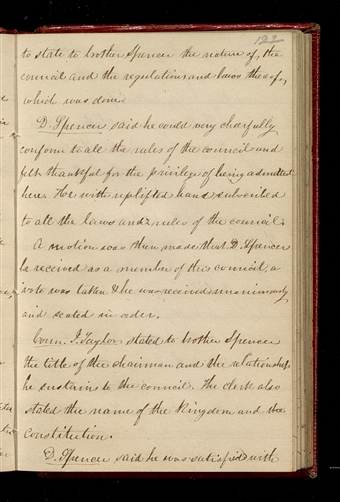 122
to state to brother Spencer the nature of, the
council and the regulations and laws thereof,
which was done.
D. Spencer said he could very chearfully
conform to all the rules of the council and
felt thankful for the privilege of being admitted
here. He with uplifted hand subscribed
to all the laws and rules of the council.
A motion was then made that D. Spencer
be received as a member of this council, a
vote was taken & he was received unanimously
and seated in order.
Coun. J. Taylor stated to brother Spencer
the title of the chairman and the relationship
he sustains to the council. The clerk also
stated the name of the Kingdom and the
Constitution.
D. Spencer said he was satisfied with